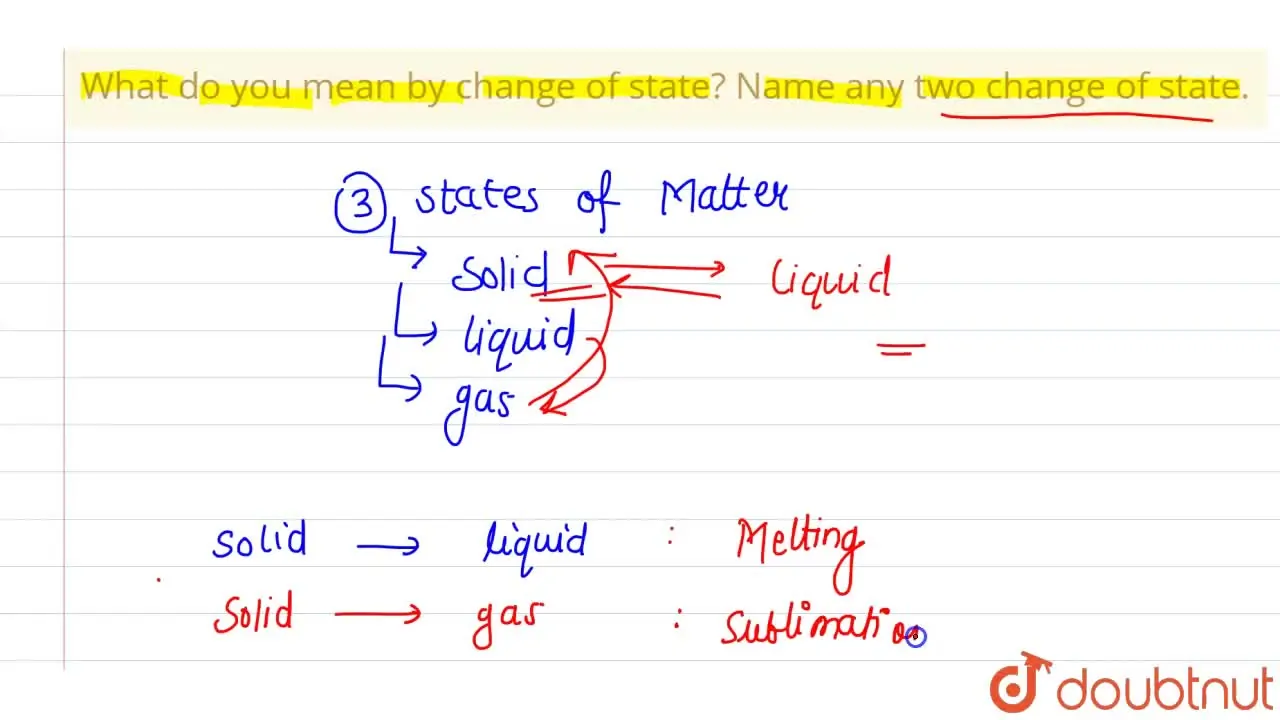 What do you mean by change of state? Name any two change of state.
3 states of Matter
Solid liquid
liquid
gas
solid → liquid : Melting
Solid → gas : Sublimation
doubtnut